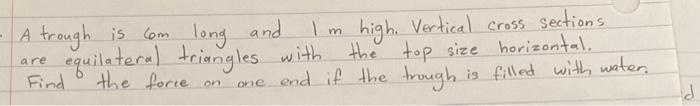 - A trough is 6m long and 1 m high. Vertical cross sections
are equilateral triangles with the top size horizontal.
Find the force on one end if the trough is filled with water.
d